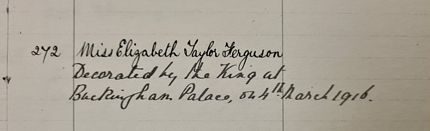 272 Miss Elizabeth Taylor Ferguson
Decorated by the King at
Buckingham Palace, on 4th March 1916.